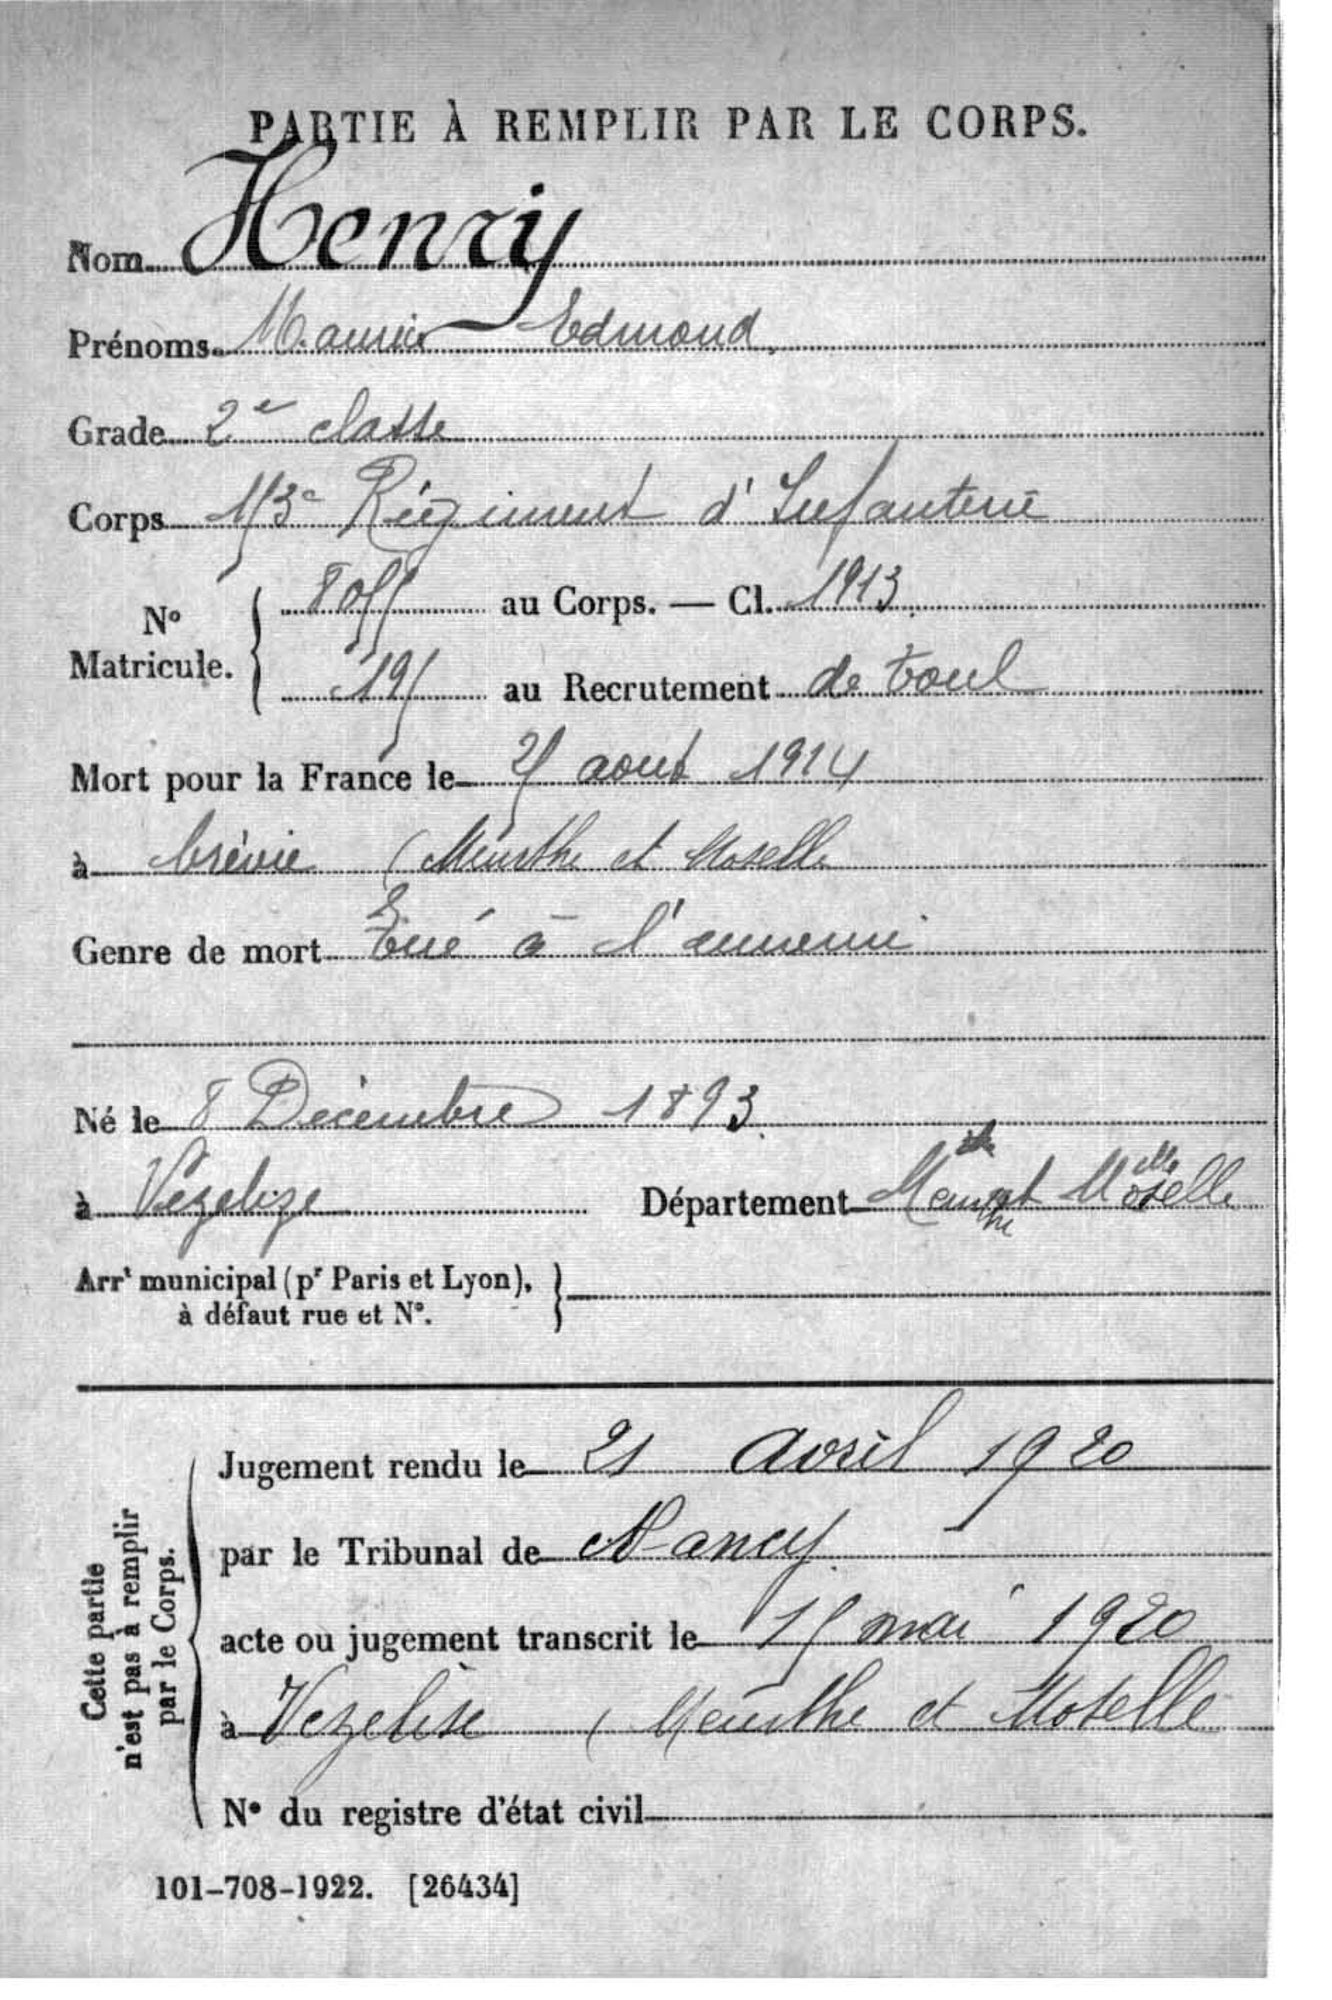 PARTIE À REMPLIR PAR LE CORPS.
Nom Henry
Prénoms Maurice Edmond.
Grade 2e classe
Corps 153e Régiment d'Infanterie
8055 au Corps. — Cl. 1913.
N° Matricule.
au Recrutement de Toul
Mort pour la France le 25 aout 1914
à Crévic (Meurthe et Moselle
Genre de mort Tué à l'ennemi
Né le 8 Décembre 1893.
à Vézelize Département Meurthe et Moselle
Arrt municipal (pr Paris et Lyon),
à défaut rue et N°.
Cette partie
n'est pas à remplir
par le Corps.
Jugement rendu le 21 avril 1920
par le Tribunal de Nancy
acte ou jugement transcrit le 15 mai 1920
à Vezelise (Meurthe et Moselle
N° du registre d'état civil
101-708-1922. [26434]